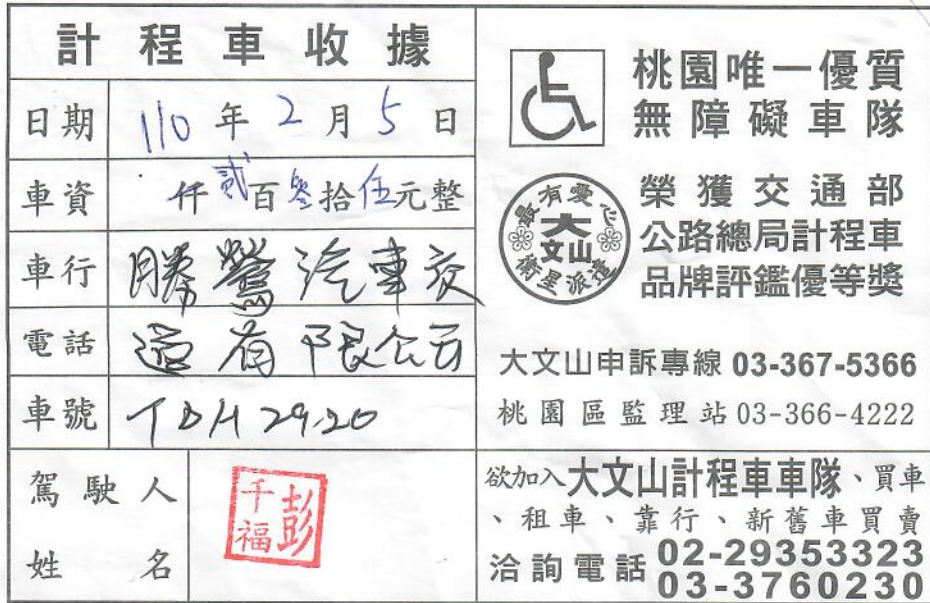 計程車收據
日期 110年2月5日
車資 仟貳百叁拾伍元整
車行 勝鶯汽車交
電話 通有限公司
車號 TDH 2920
駕駛人
姓名
彭千福
桃園唯一優質
無障礙車隊
最有愛心
大文山
衛星派遣
榮獲交通部
公路總局計程車
品牌評鑑優等獎
大文山申訴專線 03-367-5366
桃園區監理站 03-366-4222
欲加入大文山計程車車隊、買車
、租車、靠行、新舊車買賣
洽詢電話 02-29353323
03-3760230